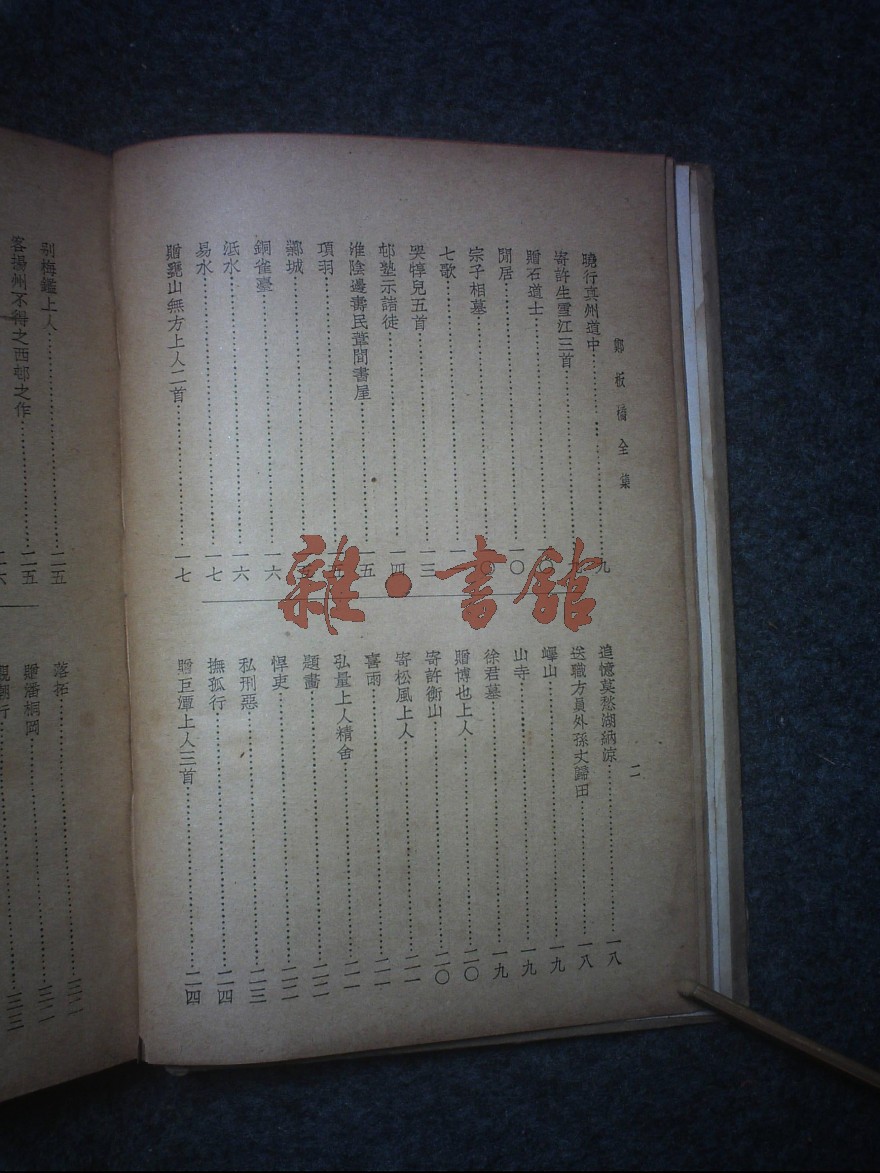 鄭板橋全集
二
曉行真州道中……九
寄許生雪江三首
贈石道士……一〇
閒居……一〇
宗子相墓……一〇
七歌
哭犉兒五首……一三
邨塾示諸徒……一四
淮陰邊壽民葦間書屋……一五
項羽
鄴城
銅雀臺……一六
泜水……一六
易水……一七
贈甕山無方上人二首……一七
追憶莫愁湖納涼……一八
送職方員外孫丈歸田……一八
嶧山……一九
山寺……一九
徐君墓……一九
贈博也上人……二〇
寄許衡山……二〇
寄松風上人……二一
喜雨……二一
弘量上人精舍……二一
題畫……二二
悍吏……二二
私刑惡……二三
撫孤行……二四
贈巨潭上人三首……二四
別梅鑑上人……二五
客揚州不得之西邨之作……二五
二六
落拓……三二
贈潘桐岡……三二
觀潮行……三三
雜·書館